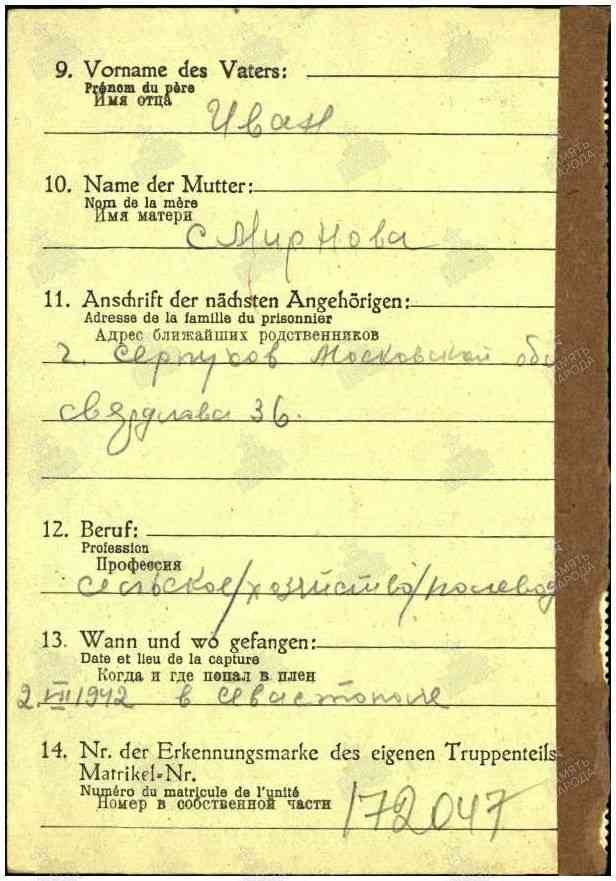 9. Vorname des Vaters:
Prénom du père
Имя отца
Иван
10. Name der Mutter:
Nom de la mère
Имя матери
Смирнова
11. Anschrift der nächsten Angehörigen:
Adresse de la famille du prisonnier
Адрес ближайших родственников
г. Серпухов Московской обл
Свярдлава 36.
12. Beruf:
Profession
Профессия
сельское/хозяйство/полевод
13. Wann und wo gefangen:
Date et lieu de la capture
Когда и где попал в плен
2.VII 1942 в Севастополе
14. Nr. der Erkennungsmarke des eigenen Truppenteils
Matrikel-Nr.
Numéro du matricule de l'unité
Номер в собственной части
172047